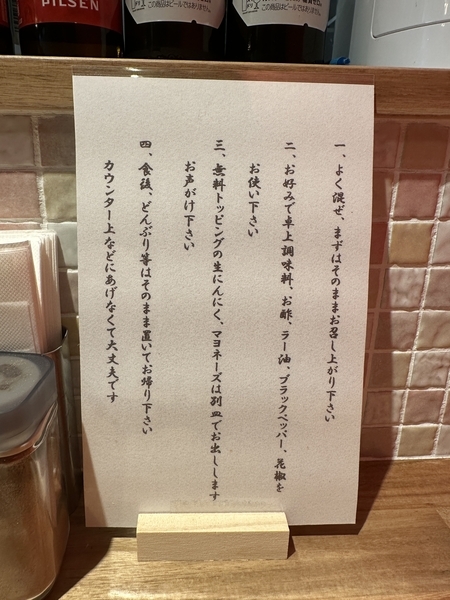 PILSEN
この商品はビールではありません
この商品はビールではありません
一、よく混ぜ、まずはそのままお召し上がり下さい
二、お好みで卓上調味料、お酢、ラー油、ブラックペッパー、花椒を
お使い下さい
三、無料トッピングの生にんにく、マヨネーズは別皿でお出しします
お声がけ下さい
四、食後、どんぶり等はそのまま置いてお帰り下さい
カウンター上などにあげなくて大丈夫です